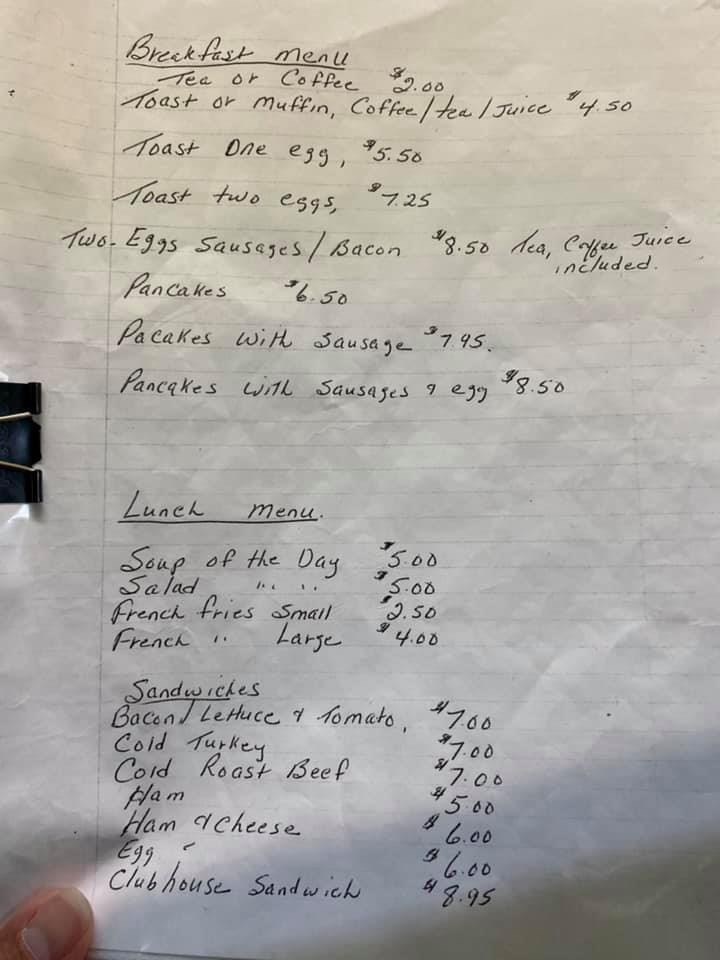 Breakfast menu
Tea or Coffee $2.00
Toast or muffin, Coffee/tea/Juice $4.50
Toast One egg, $5.50
Toast two eggs, $7.25
Two-Eggs Sausages/Bacon $8.50 Tea, Coffee Juice
included.
Pancakes $6.50
Pacakes with Sausage $7.95.
Pancakes with Sausages & egg $8.50
Lunch menu.
Soup of the Day $5.00
Salad " " " $5.00
French fries Small $2.50
French " Large $4.00
Sandwiches
Bacon/Lettuce & Tomato, $7.00
Cold Turkey $7.00
Cold Roast Beef $7.00
Ham $5.00
Ham & Cheese $6.00
Egg $6.00
Clubhouse Sandwich $8.95